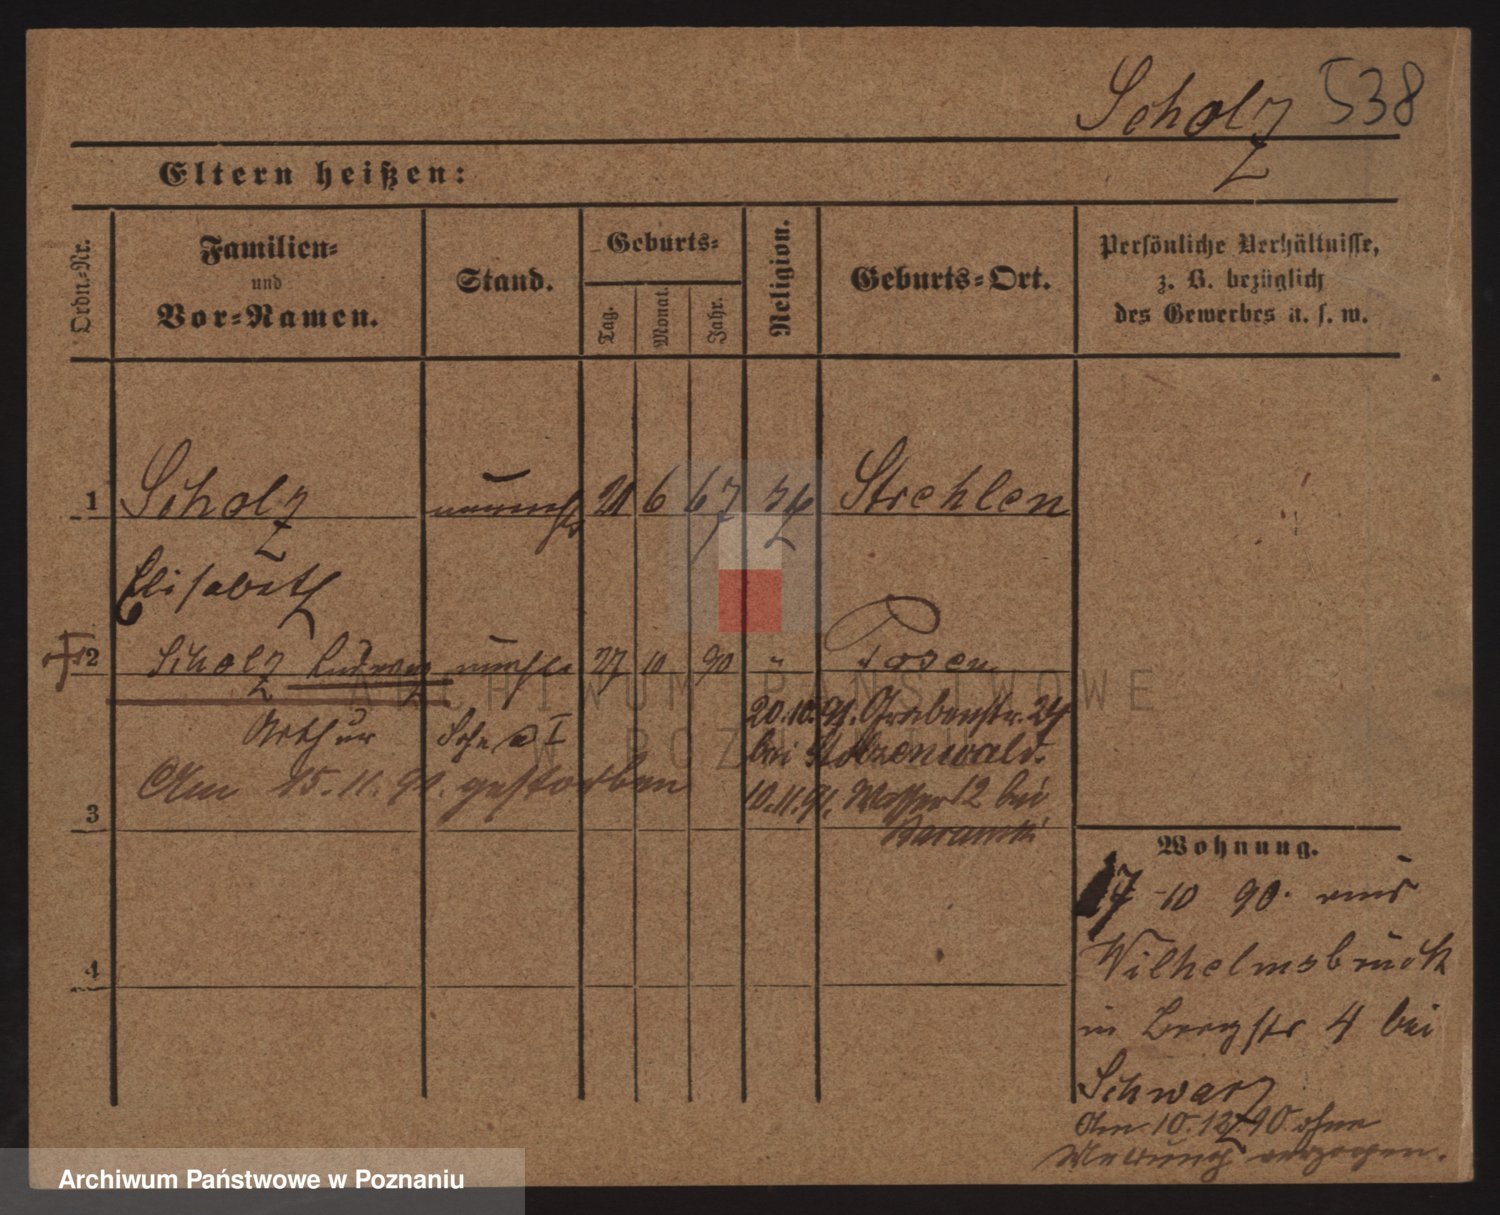 Scholz 538
Eltern heißen:
Ordn.-Nr.
Familien-
und
Vor-Namen.
Stand.
Geburts-
Tag.
Monat.
Jahr.
Religion.
Geburts-Ort.
Persönliche Verhältnisse,
z. B. bezüglich
des Gewerbes u. s. w.
1 Scholz 6 67 Strehlen
Elisabeth
2 Scholz Ludwig 27 10 90 " Posen
Arthur I
20.10.91. Grabenstr. 24
bei Stolzenwald.
Am 15.11.91. gestorben
10.11.91. Wasser 12 bei
3
Wohnung.
17 10 90. aus
Wilhelmsbrück
in Bergstr 4 bei
Schwarz
Am 10.12.90 ohne
Meldung verzogen.
4
ARCHIWUM PAŃSTWOWE
W POZNANIU
Archiwum Państwowe w Poznaniu